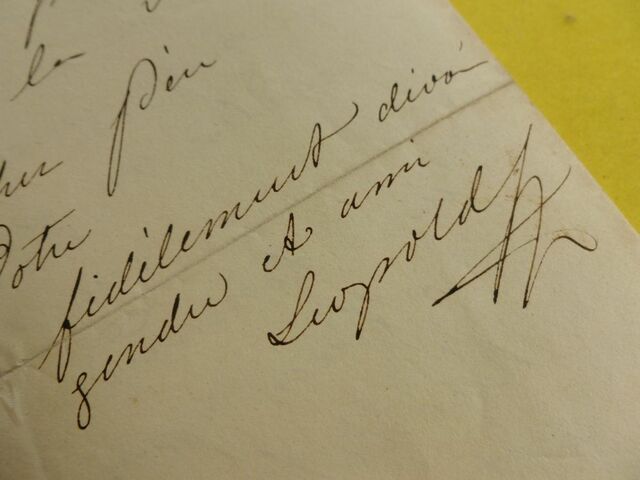 la
Père
Votre
fidèlement dévoué
gendre et ami
Leopold